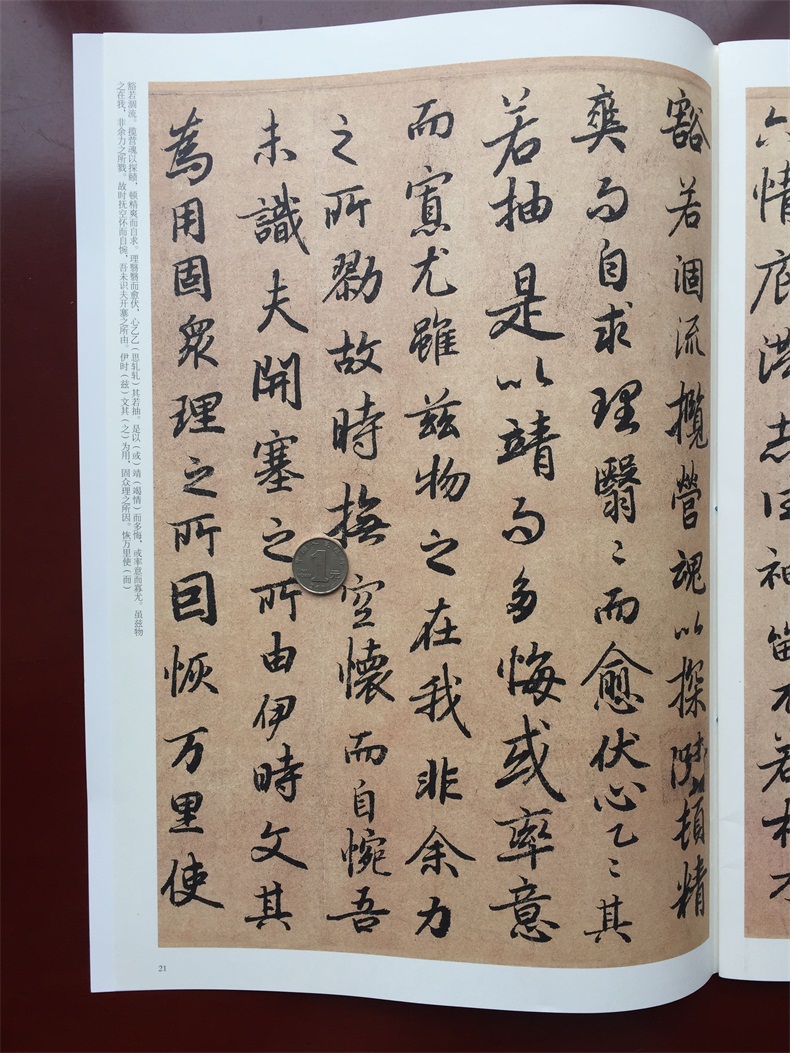 六情底
豁若涸流攬營魂以探賾頓精
爽而自求理翳〻而愈伏心乙〻其
若抽是以靖而多悔或率意
而寡尤雖茲物之在我非余力
之所勠故時撫空懷而自惋吾
未識夫開塞之所由伊時文其
為用固衆理之所因恢万里使
豁若涸流。揽营魂以探赜，顿精爽而自求。理翳翳而愈伏，心乙乙（思轧轧）其若抽。是以（或）靖（竭情）而多悔，或率意而寡尤。虽兹物
之在我，非余力之所戮。故时抚空怀而自惋，吾未识夫开塞之所由。伊时（兹）文其（之）为用，固众理之所因。恢万里使（而）
21
1